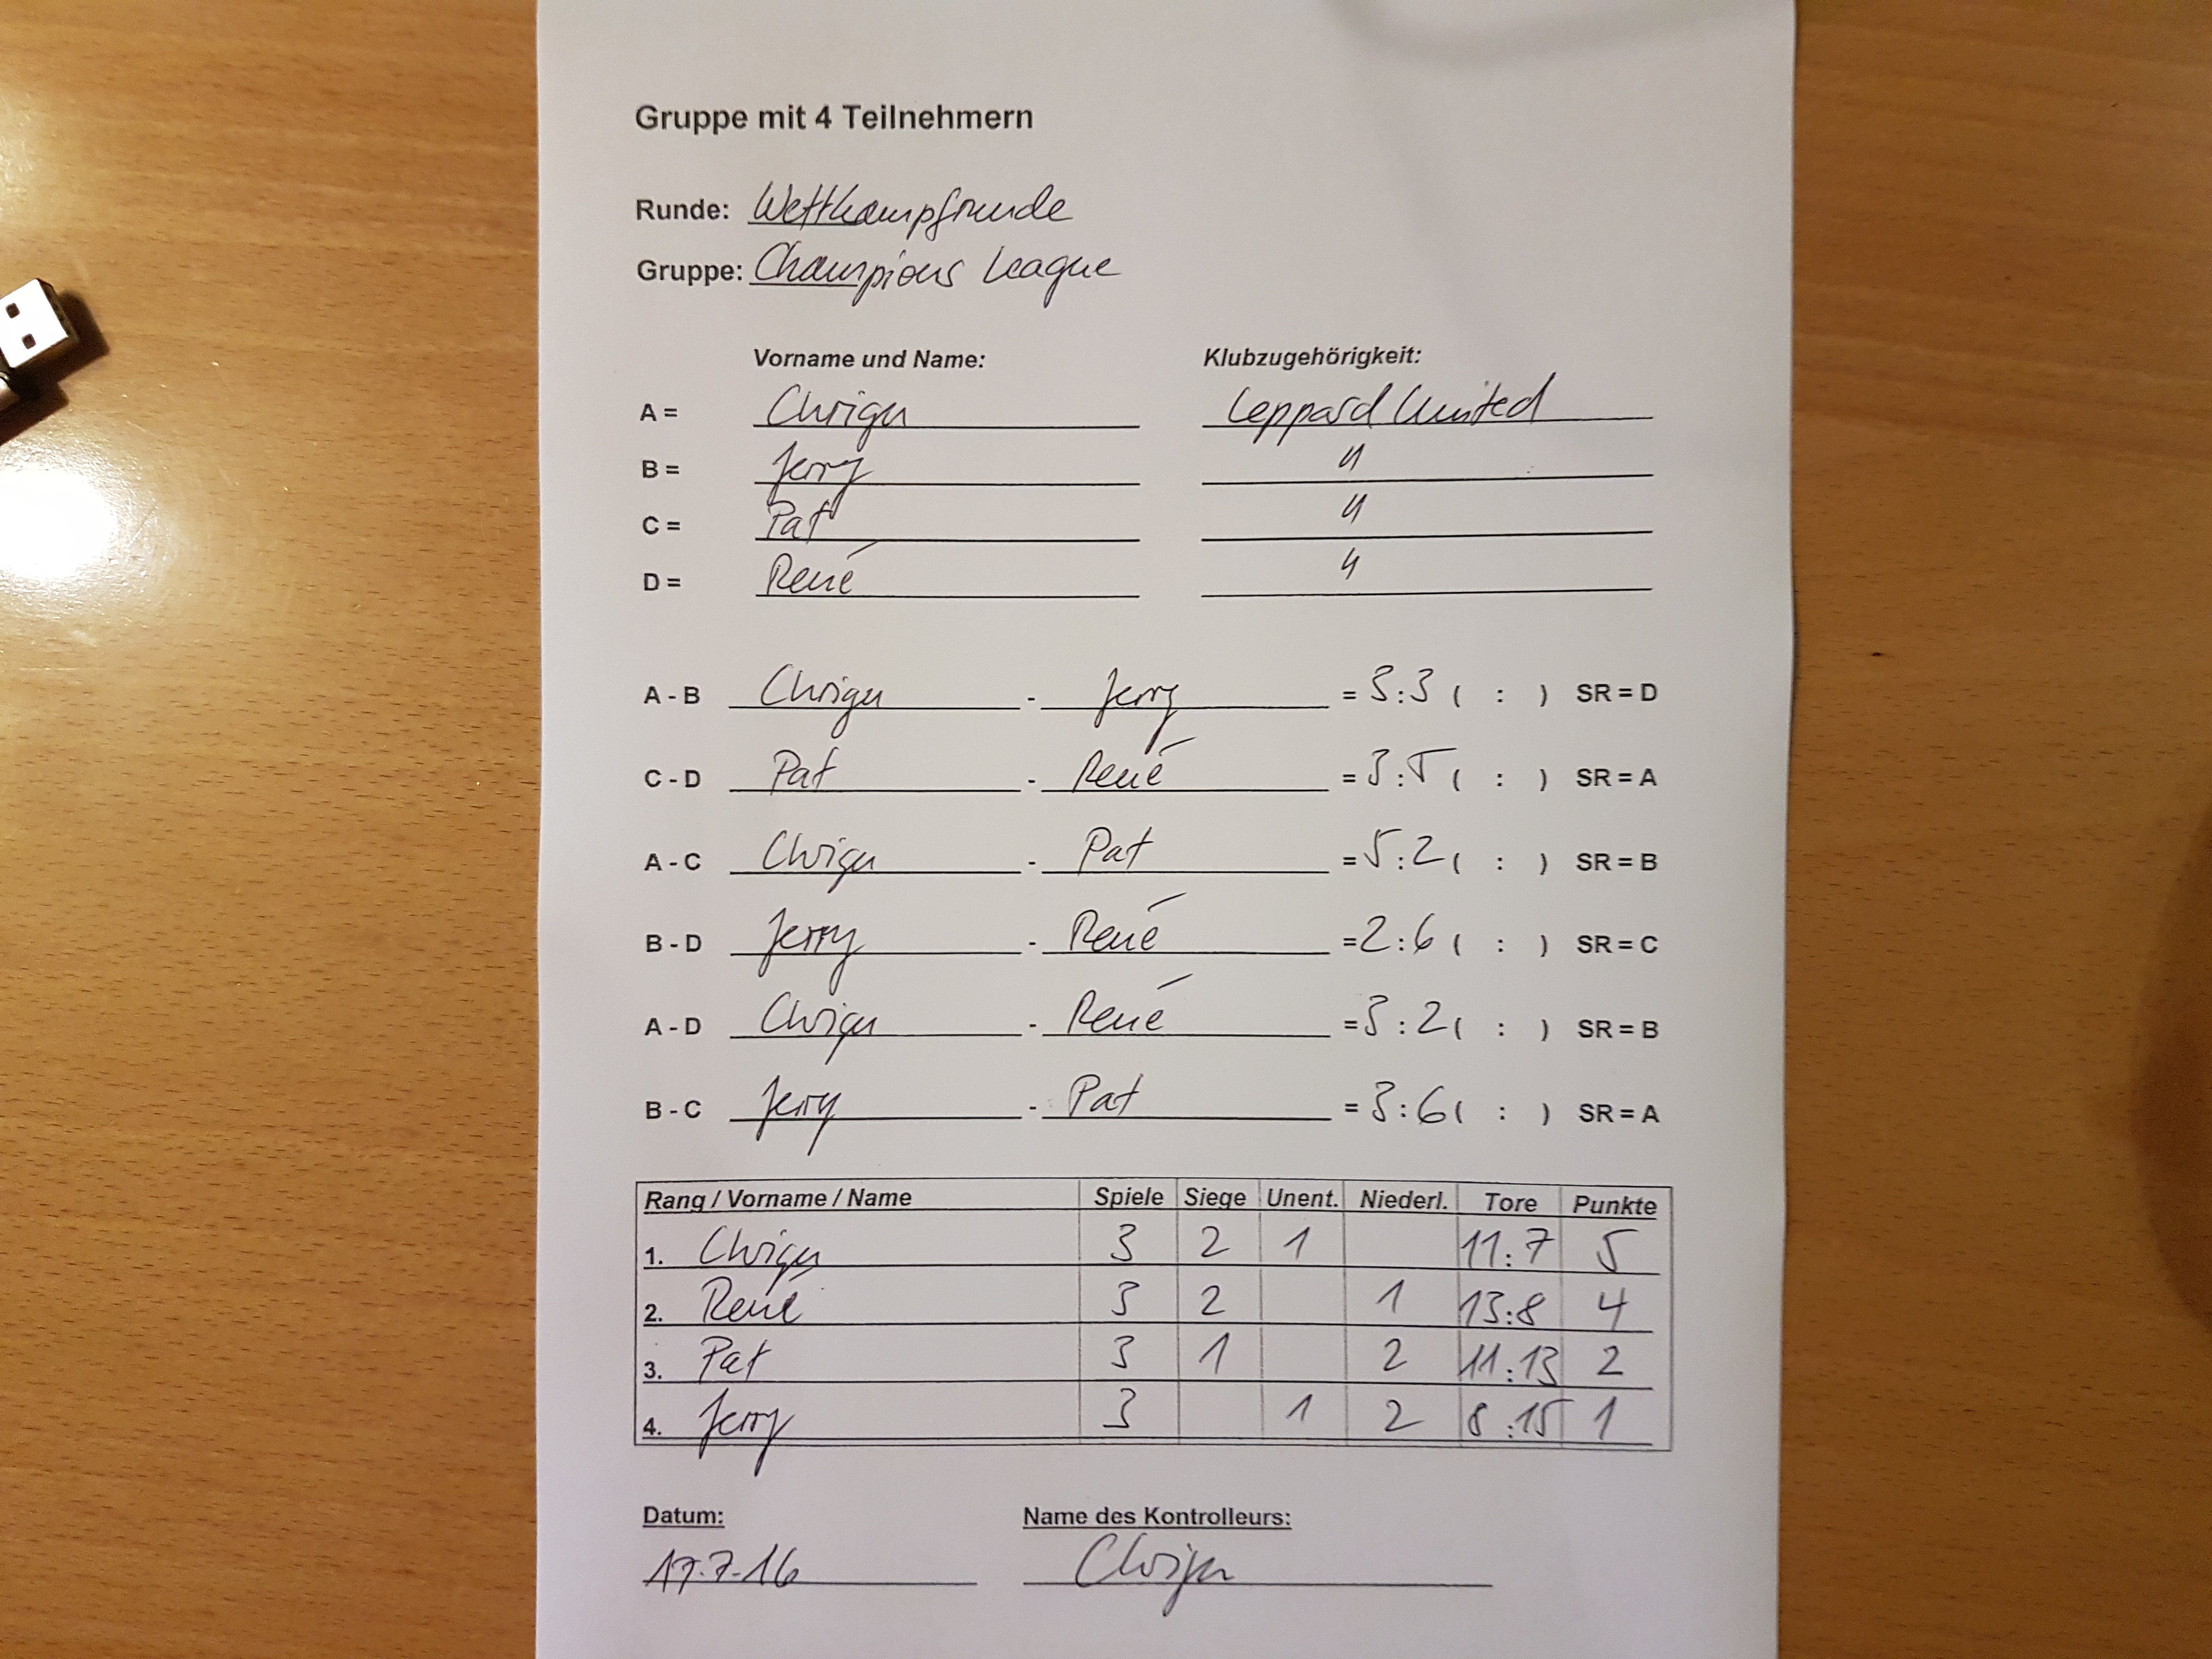 Gruppe mit 4 Teilnehmern
Runde: Wettkampfrunde
Gruppe: Champions League
Vorname und Name: Klubzugehörigkeit:
A = Chrigu Leppard United
B = Jerry "
C = Pat "
D = René "
A - B Chrigu - Jerry = 3:3 ( : ) SR = D
C - D Pat - René = 3:5 ( : ) SR = A
A - C Chrigu - Pat = 5:2 ( : ) SR = B
B - D Jerry - René = 2:6 ( : ) SR = C
A - D Chrigu - René = 3:2 ( : ) SR = B
B - C Jerry - Pat = 3:6 ( : ) SR = A
Rang / Vorname / Name Spiele Siege Unent. Niederl. Tore Punkte
1. Chrigu 3 2 1 11:7 5
2. René 3 2 1 13:8 4
3. Pat 3 1 2 11:13 2
4. Jerry 3 1 2 8:15 1
Datum: Name des Kontrolleurs:
17.7.16 Chrigu